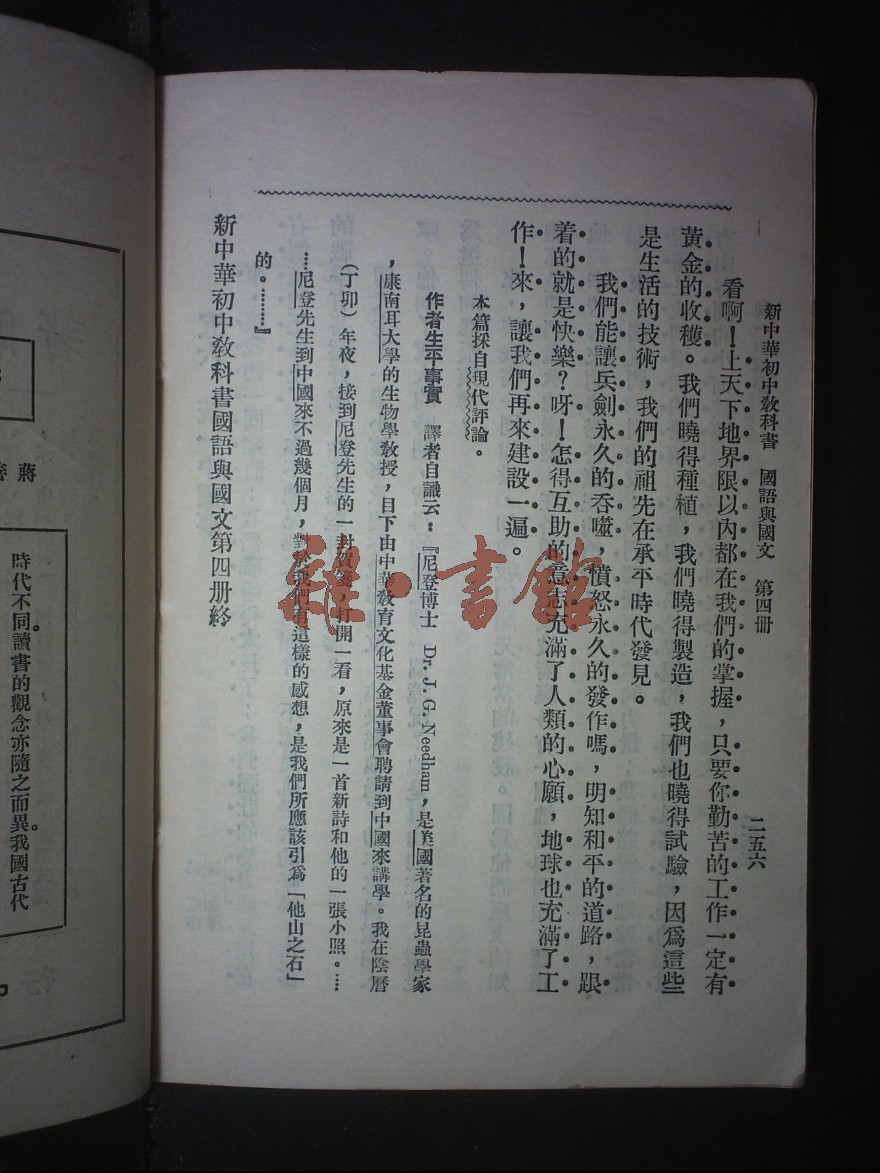 新中華初中教科書　國語與國文　第四册
二五六
看啊！上天下地界限以內都在我們的掌握，只要你勤苦的工作一定有
黃金的收穫。我們曉得種植，我們曉得製造，我們也曉得試驗，因爲這些
是生活的技術，我們的祖先在承平時代發見。
我們能讓兵劍永久的吞噬，憤怒永久的發作嗎，明知和平的道路，跟
着的就是快樂？呀！怎得互助的意志充滿了人類的心願，地球也充滿了工
作！來，讓我們再來建設一遍。
本篇採自現代評論。
作者生平事實　譯者自識云：『尼登博士　Dr. J. G. Needham，是美國著名的昆蟲學家
，康南耳大學的生物學教授，目下由中華教育文化基金董事會聘請到中國來講學。我在陰曆
（丁卯）年夜，接到尼登先生的一封賀箋，打開一看，原來是一首新詩和他的一張小照。……
…尼登先生到中國來不過幾個月，對於我們有這樣的感想，是我們所應該引爲「他山之石」
的。………』
新中華初中教科書國語與國文第四册終
蔣
時代不同讀書的觀念亦隨之而異。我國古代
雜·書館